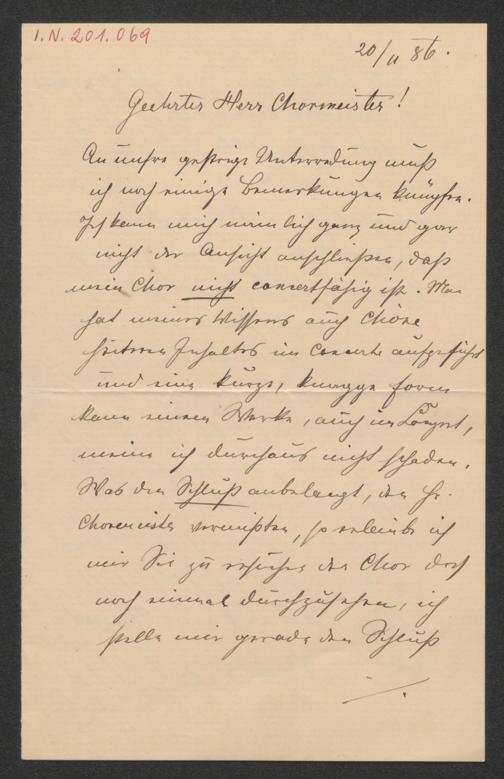 I.N. 201.069
20/11 86.
Geehrter Herr Chormeister!
An unsre gestrige Unterredung muß
ich noch einige Bemerkungen knüpfen.
Ich kann mich nämlich ganz und gar
nicht der Ansicht anschließen, daß
mein Chor nicht concertfähig ist. Man
hat meines Wissens auch Chöre
heiteren Inhaltes im Concerte aufgeführt
und eine kurze, knappe Form
kann einem Werke, auch im Concert,
meine ich durchaus nicht schaden.
Was den Schluß anbelangt, den Hr.
Chormeister vermißten, so erlaube ich
mir Sie zu ersuchen den Chor doch
noch einmal durchzusehen, ich
stelle mir gerade den Schluß